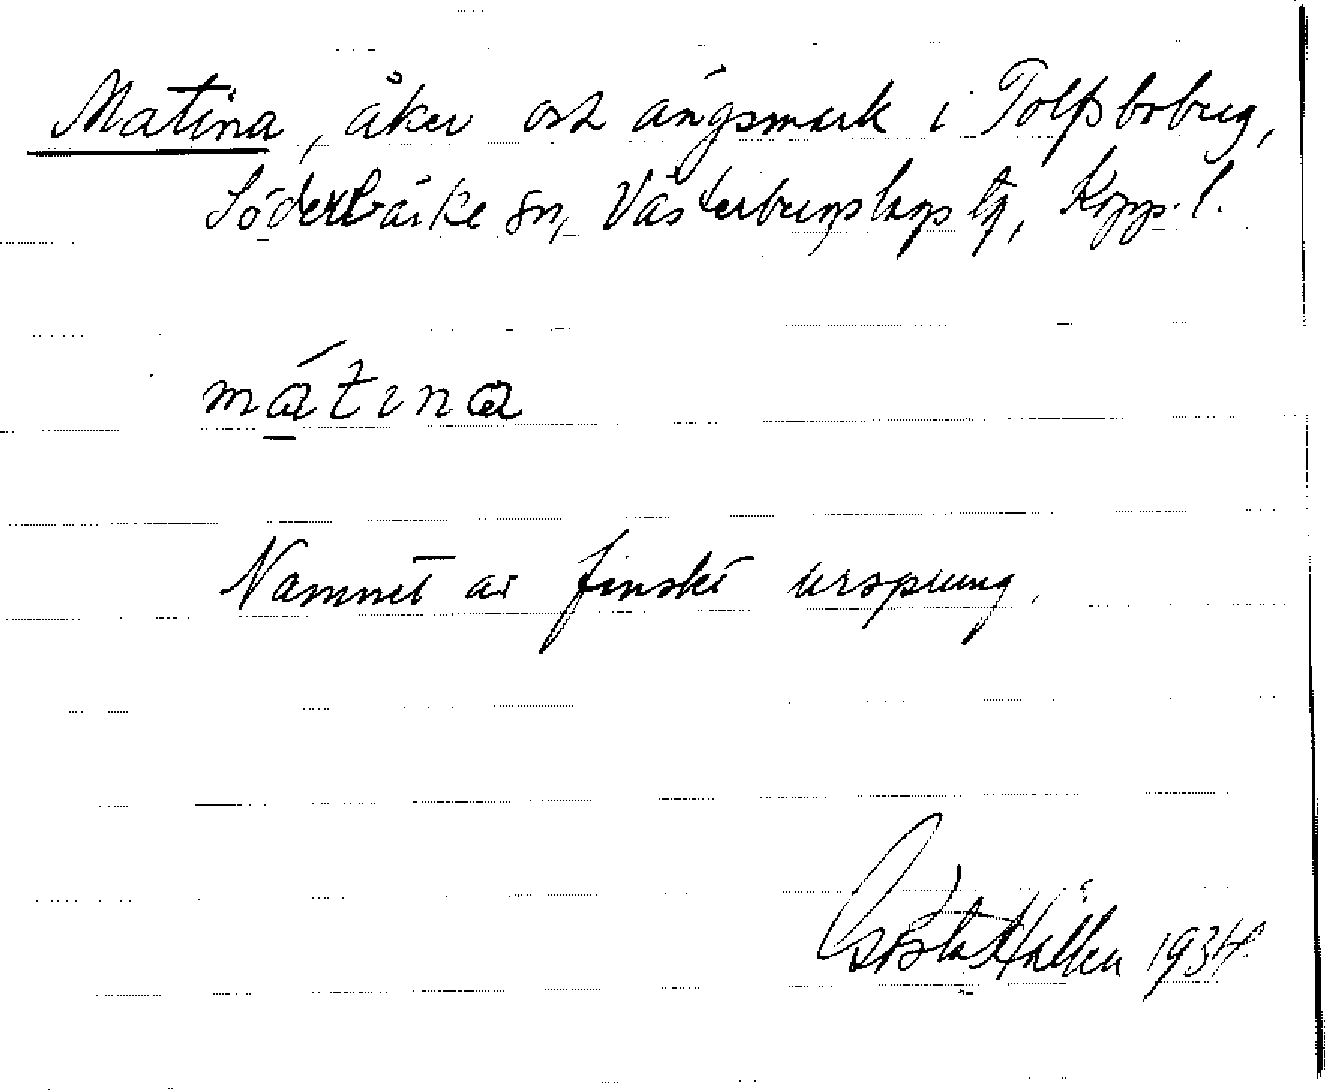 Matina, åker och ängsmark i Tolfsbobrug,
Söderbärke sn, Västerbergslags tg, Kopp. l.
mátina
Namnet av finskt ursprung.
Gösta Hållen 1934.